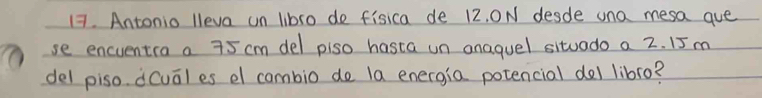 17. Antonio lleva un libro de física de 12.0N desde una mesa que
se encuentra a 75 cm del piso hasta un anaquel situado a 2.15m
del piso. ¿Cuál es el cambio de la energía potencial del libro?